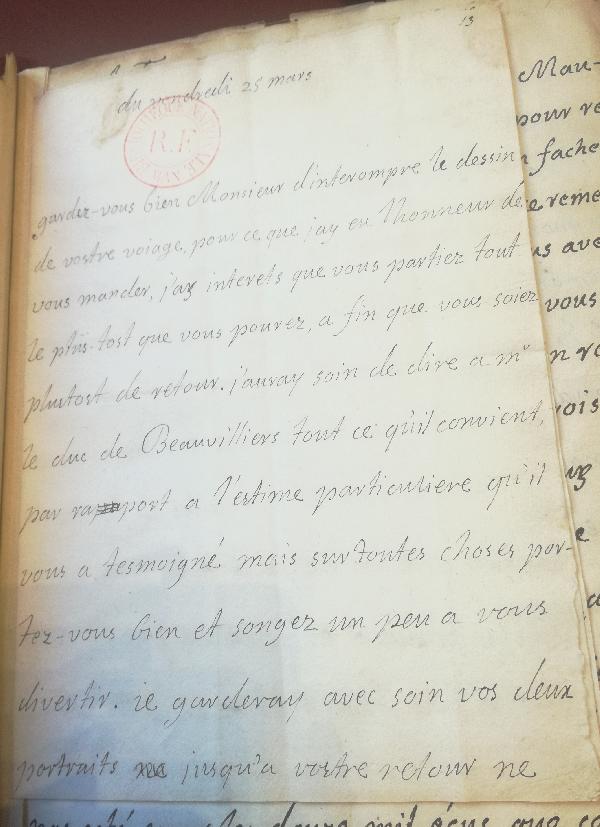 13
du vendredi 25 mars
R.F.
gardez-vous bien Monsieur d'interompre le dessin
de vostre voiage, pour ce que j'ay eu l'honneur de
vous mander, j'ay interets que vous partiez tout
le plus-tost que vous pourez, a fin que vous soiez
plutost de retour. j'auray soin de dire a mr
le duc de Beauvilliers tout ce qu'il convient,
par raport a l'estime particuliere qu'il
vous a tesmoigné mais sur toutes choses por-
tez-vous bien et songez un peu a vous
divertir. ie garderay avec soin vos deux
portraits jusqu'a vostre retour ne
Mau-
pour re
fache
e reme
us ave
vous
n re
vois